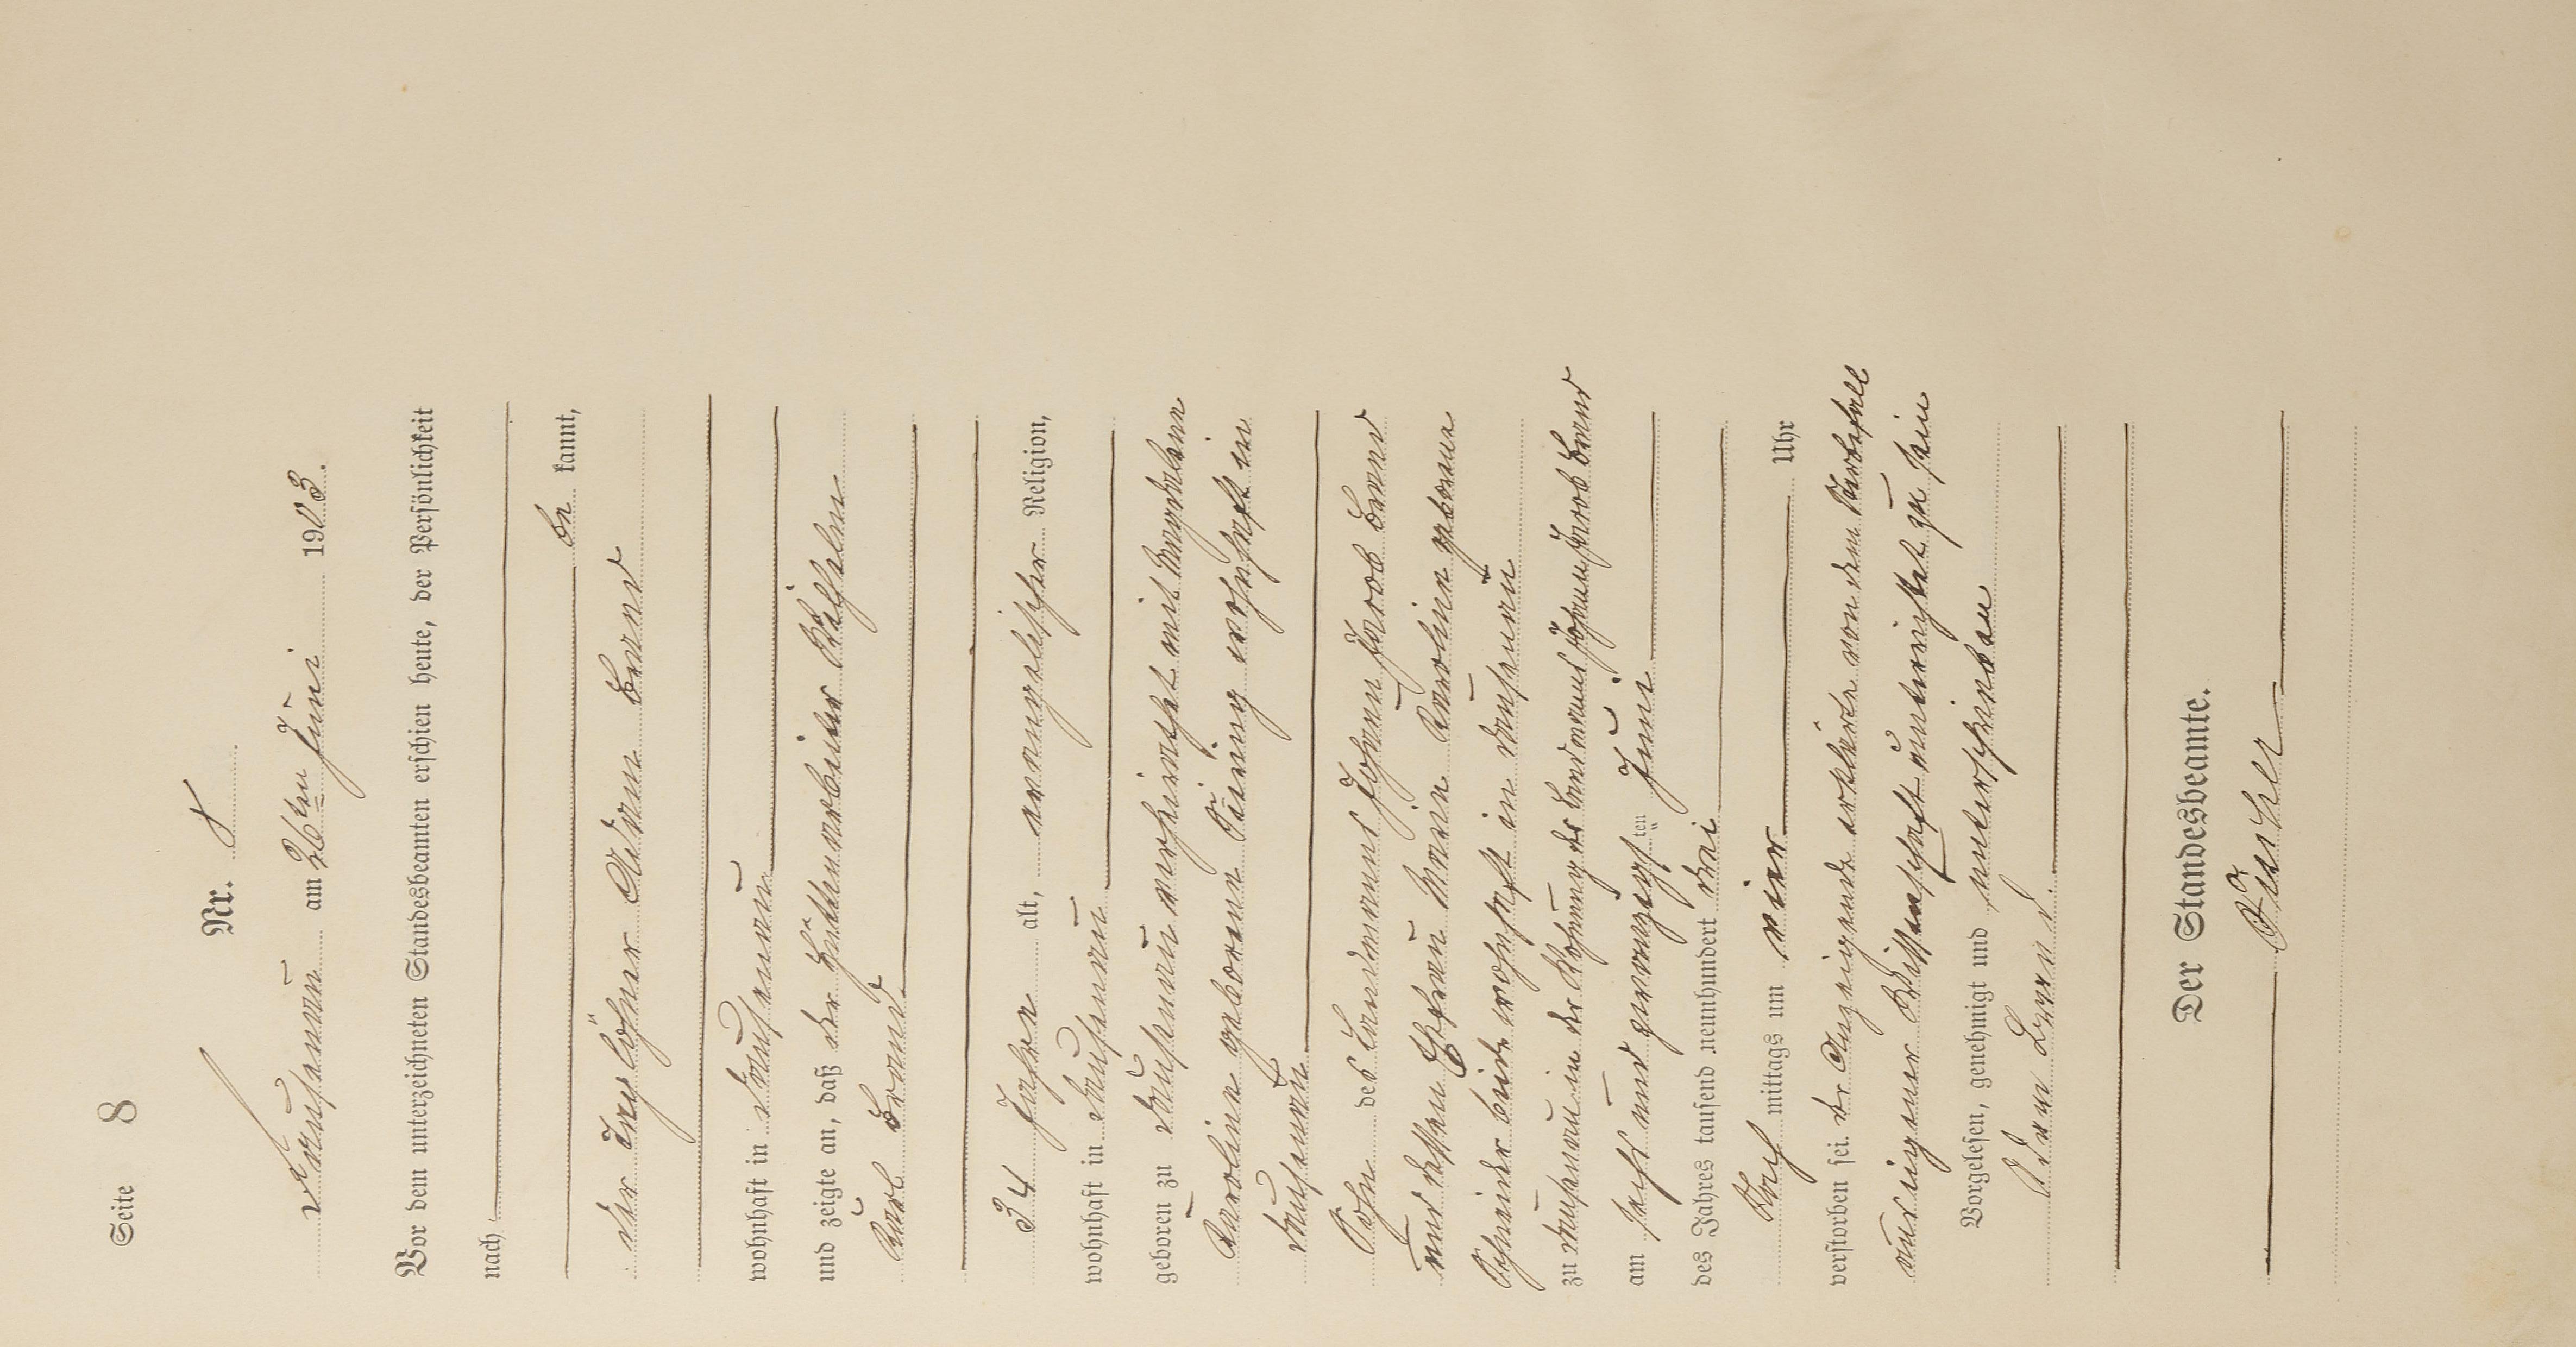 Seite 8
Nr. 8
Dausenau am 26ten Juni 1903.
Vor dem unterzeichneten Standesbeamten erschien heute, der Persönlichkeit
nach
be kannt,
der Taglöhner Adam Brand
wohnhaft in Dausenau
und zeigte an, daß der Hüttenarbeiter Wilhelm
Karl Brand
34 Jahre alt, evangelischer Religion,
wohnhaft in Dausenau
geboren zu Dausenau verheirathet mit Magdalene
Karoline geborene wohnhaft in
Dausenau
Sohn des Landmanns Johann Jacob Brand
und dessen Ehefrau Marie Karoline geborene
Schneider beide wohnhaft in Dausenau
zu Dausenau in der Wohnung des Landmanns Johann Jacob Brand
am sechs und zwanzigsten Juni
des Jahres tausend neunhundert drei
Nach mittags um vier Uhr
verstorben sei. der Anzeigende erklärte von dem Sterbefall
aus eigener Wissenschaft unterrichtet zu sein
Vorgelesen, genehmigt und unterschrieben
Adam Brand
Der Standesbeamte.